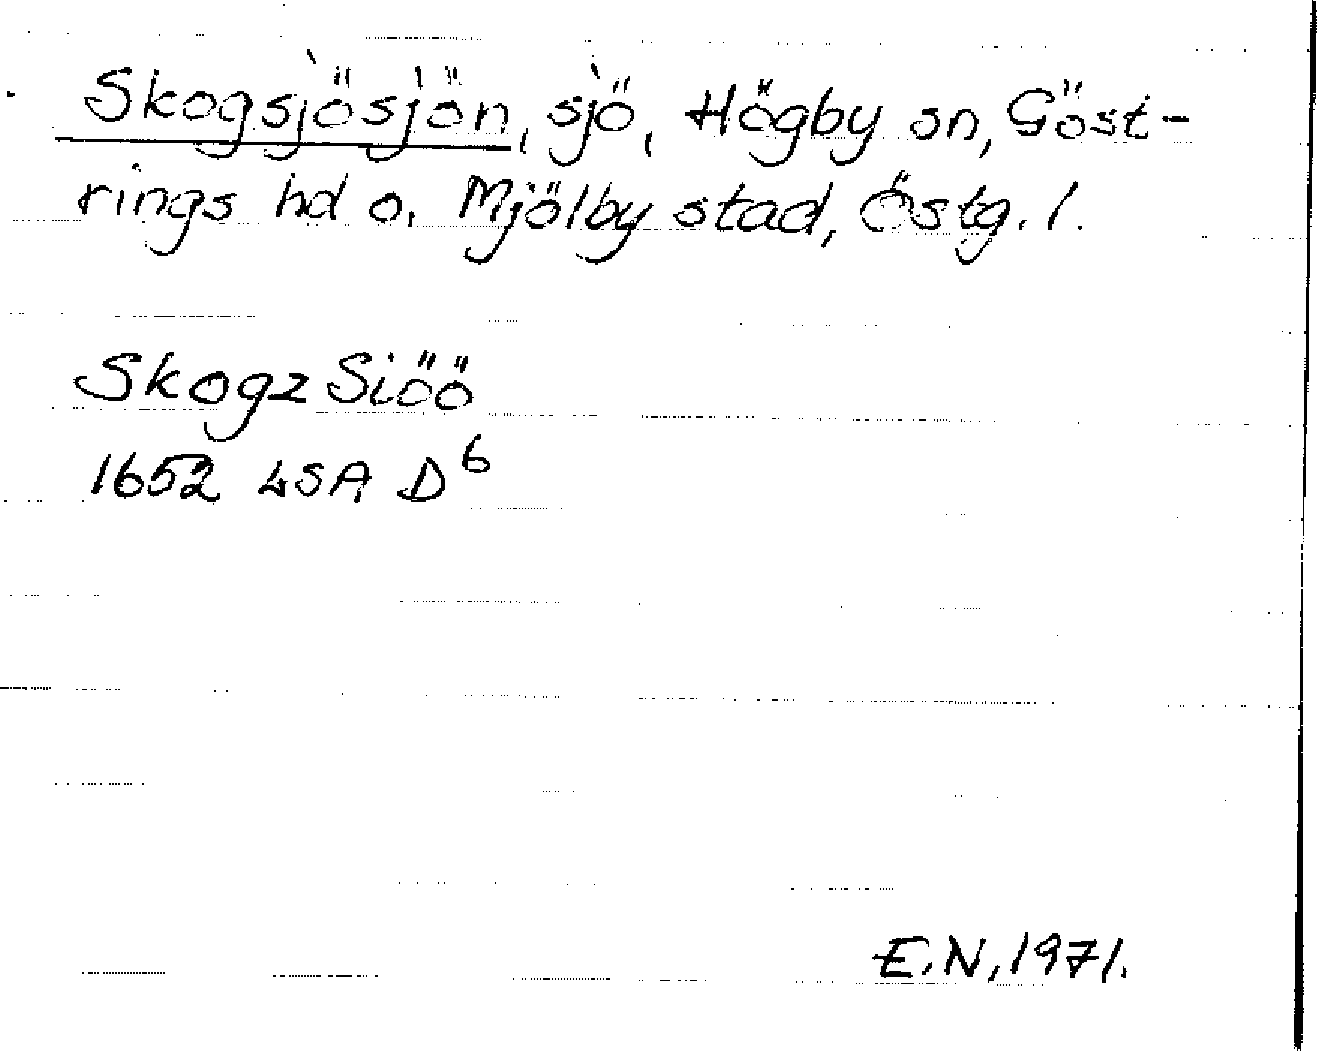 Skogsjösjön, sjö, Högby sn, Göst-
rings hd o. Mjölby stad, Östg. l.
Skogz Siöö
1652 LSA D⁶
E.N, 1971.